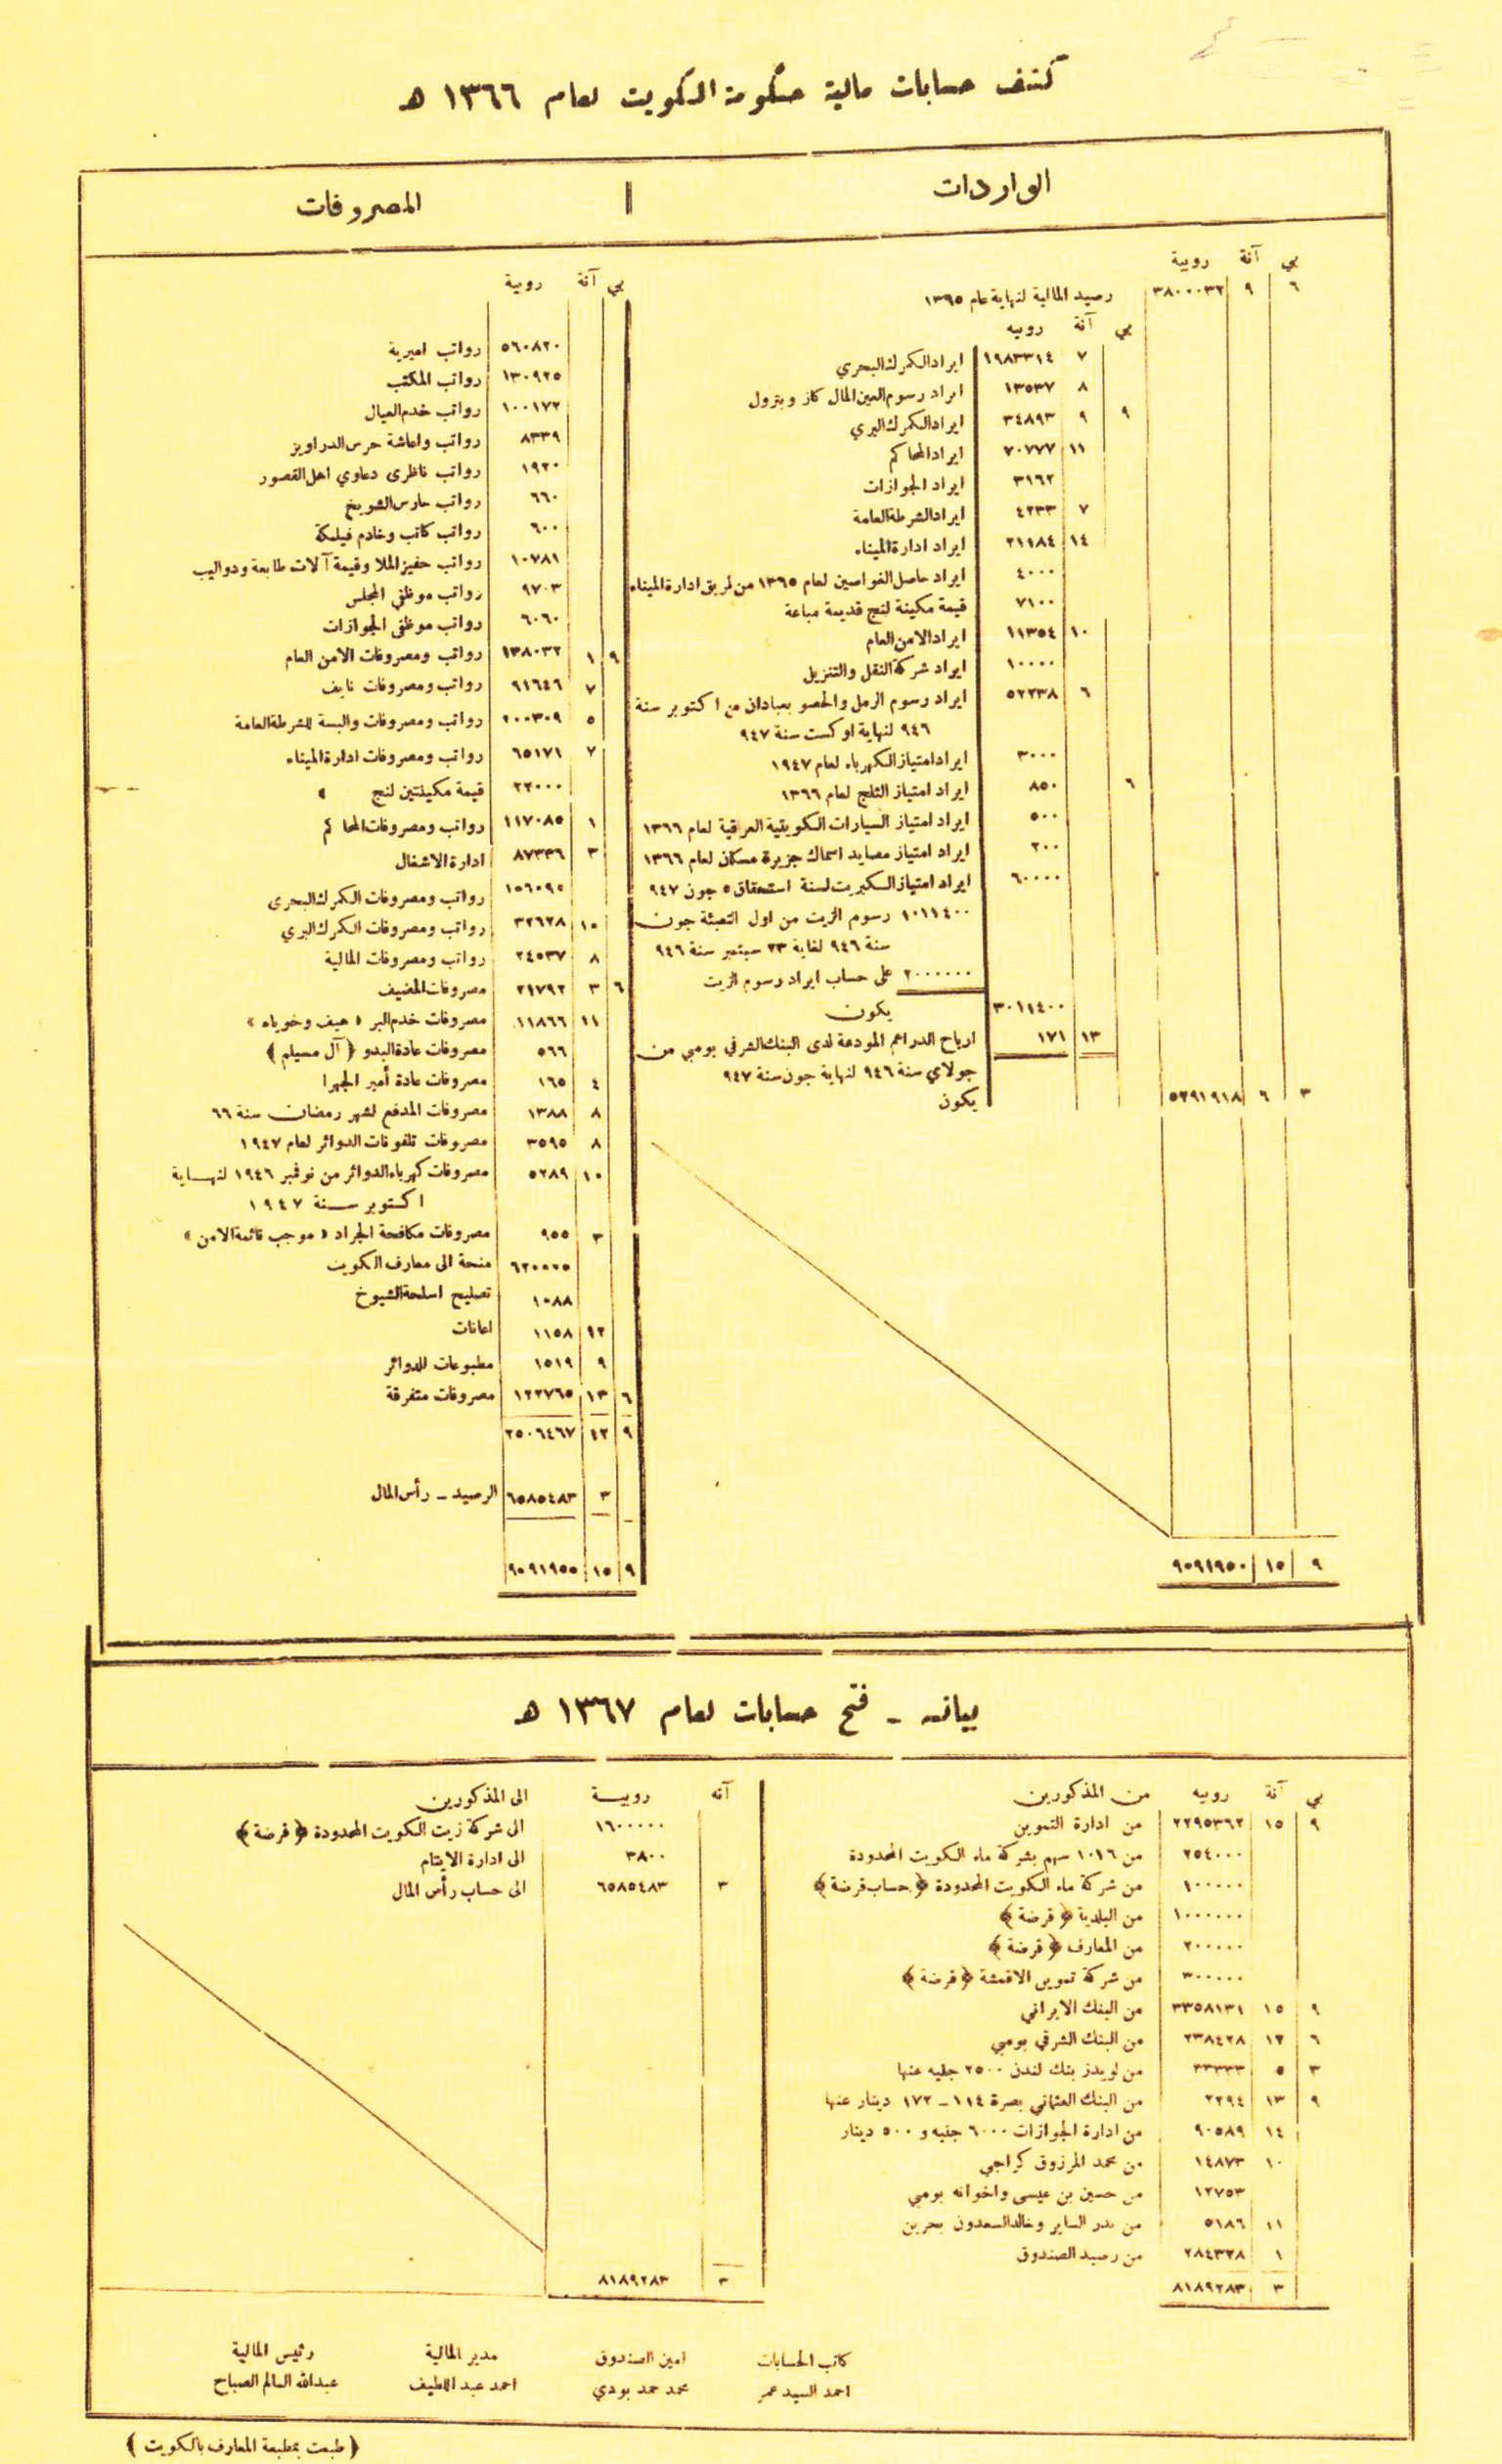 كشف حسابات مالية حكومة الكويت لعام ١٣٦٦ هـ
الواردات
بي آنة روبية
٦ ٩ ٣٨٠٠٠٣٢ رصيد المالية لنهاية عام ١٣٦٥
بي آنة روبيه
٧ ١٩٨٣٣١٤ ايراد الكمرك البحري
٨ ١٣٥٣٧ ايراد رسوم العين المال كاز وبترول
٩ ٩ ٣٤٨٩٣ ايراد الكمرك البري
١١ ٧٠٧٧٧ ايراد المحاكم
٣١٦٢ ايراد الجوازات
٧ ٤٢٣٣ ايراد الشرطة العامة
١٤ ٢١١٨٤ ايراد ادارة الميناء
٤٠٠٠ ايراد حاصل الغواصين لعام ١٣٦٥ من طريق ادارة الميناء
٧١٠٠ قيمة مكينة لنج قديمة مباعة
١٠ ١١٣٥٤ ايراد الامن العام
١٠٠٠٠ ايراد شركة النقل والتنزيل
٦ ٥٢٢٣٨ ايراد رسوم الرمل والحصو بعبادان من اكتوبر سنة
٩٤٦ لنهاية اوكست سنة ٩٤٧
٣٠٠٠ ايراد امتياز الكهرباء لعام ١٩٤٧
٦ ٨٥٠ ايراد امتياز الثلج لعام ١٣٦٦
٥٠٠ ايراد امتياز السيارات الكويتية العراقية لعام ١٣٦٦
٢٠٠ ايراد امتياز مصايد اسماك جزيرة مسكان لعام ١٣٦٦
٦٠٠٠٠ ايراد امتياز السكبريت لسنة استحقاق ٥ جون ٩٤٧
١٠١١٤٠٠ رسوم الزيت من اول التعبئة جون
سنة ٩٤٦ لغاية ٢٣ سبتمبر سنة ٩٤٦
٢٠٠٠٠٠٠ على حساب ايراد رسوم الزيت
٣٠١١٤٠٠ يكون
١٣ ١٧١ ارباح الدراهم المودعة لدى البنك الشرقي بومبي من
جولاي سنة ٩٤٦ لنهاية جون سنة ٩٤٧
٣ ٦ ٥٢٩١٩١٨ يكون
٩ ١٥ ٩٠٩١٩٥٠
المصروفات
بي آنة روبية
٥٦٠٨٢٠ رواتب اميرية
١٣٠٩٢٥ رواتب المكتب
١٠٠١٧٢ رواتب خدم العيال
٨٣٣٩ رواتب واعاشة حرس الدراويز
١٩٢٠ رواتب ناظرى دعاوي اهل القصور
٦٦٠ رواتب حارس الشويخ
٦٠٠ رواتب كاتب وخادم فيلكة
١٠٧٨١ رواتب حفيز الملا وقيمة آلات طابعة ودواليب
٩٧٠٣ رواتب موظفي المجلس
٦٠٦٠ رواتب موظفى الجوازات
٩ ١ ١٣٨٠٣٢ رواتب ومصروفات الامن العام
٧ ٩١٦٤٦ رواتب ومصروفات نايف
٥ ١٠٠٣٠٩ رواتب ومصروفات والبسة للشرطة العامة
٧ ٦٥١٧١ رواتب ومصروفات ادارة الميناء
٢٢٠٠٠ قيمة مكينتين لنج »
١ ١١٧٠٨٥ رواتب ومصروفات المحاكم
٣ ٨٧٣٣٦ ادارة الاشغال
١٥٦٠٩٥ رواتب ومصروفات الكمرك البحرى
١٠ ٣٢٦٢٨ رواتب ومصروفات الكمرك البري
٨ ٢٤٥٣٧ رواتب ومصروفات المالية
٦ ٣ ٢١٧٩٢ مصروفات المضيف
١١ ١١٨٦٦ مصروفات خدم البر « هيف وخوياه »
٥٦٦ مصروفات عادة البدو ( آل مسيلم )
٤ ١٦٥ مصروفات عادة أمير الجهرا
٨ ١٣٨٨ مصروفات المدفع لشهر رمضان سنة ٦٦
٨ ٣٥٩٥ مصروفات تلفونات الدوائر لعام ١٩٤٧
١٠ ٥٢٨٩ مصروفات كهرباء الدوائر من نوفمبر ١٩٤٦ لنهاية
اكتوبر سنة ١٩٤٧
٣ ٩٥٥ مصروفات مكافحة الجراد « موجب قائمة الامن »
٦٢٠٠٠٠ منحة الى معارف الكويت
١٠٨٨ تصليح اسلحة الشيوخ
١٢ ١١٥٨ اعانات
٩ ١٥١٩ مطبوعات للدوائر
٦ ١٣ ١٢٢٧٦٥ مصروفات متفرقة
٩ ١٢ ٢٥٠٦٤٦٧
٣ ٦٥٨٥٤٨٣ الرصيد - رأس المال
٩ ١٥ ٩٠٩١٩٥٠
بيان - فتح حسابات لعام ١٣٦٧ هـ
بي آنة روبيه من المذكورين
٩ ١٥ ٢٢٩٥٣٦٢ من ادارة التموين
٢٥٤٠٠٠ من ١٠١٦ سهم بشركة ماء الكويت المحدودة
١٠٠٠٠٠ من شركة ماء الكويت المحدودة ( حساب قرضة )
١٠٠٠٠٠٠ من البلدية ( قرضة )
٢٠٠٠٠٠ من المعارف ( قرضة )
٣٠٠٠٠٠ من شركة تموين الاقمشة ( قرضة )
٩ ١٥ ٣٣٥٨١٣١ من البنك الايراني
٦ ١٢ ٢٣٨٤٢٨ من البنك الشرقي بومبي
٣ ٥ ٣٣٣٣٣ من لويدز بنك لندن ٢٥٠٠ جنيه عنها
٩ ١٣ ٢٢٩٤ من البنك العثماني بصرة ١١٤ - ١٧٢ دينار عنها
١٤ ٩٠٥٨٩ من ادارة الجوازات ٦٠٠٠ جنيه و ٥٠٠ دينار
١٠ ١٤٨٧٣ من محمد المرزوق كراجي
١٢٧٥٣ من حسين بن عيسى واخوانه بومبي
١١ ٥١٨٦ من بدر الساير وخالد السعدون بحرين
١ ٢٨٤٣٢٨ من رصيد الصندوق
٣ ٨١٨٩٢٨٣
آنه روبية الى المذكورين
١٦٠٠٠٠٠ الى شركة زيت الكويت المحدودة ( قرضة )
٣٨٠٠ الى ادارة الايتام
٣ ٦٥٨٥٤٨٣ الى حساب رأس المال
٣ ٨١٨٩٢٨٣
كاتب الحسابات امين الصندوق مدير المالية رئيس المالية
احمد السيد عمر محمد حمد بودي احمد عبد اللطيف عبدالله السالم الصباح
( طبعت بمطبعة المعارف بالكويت )